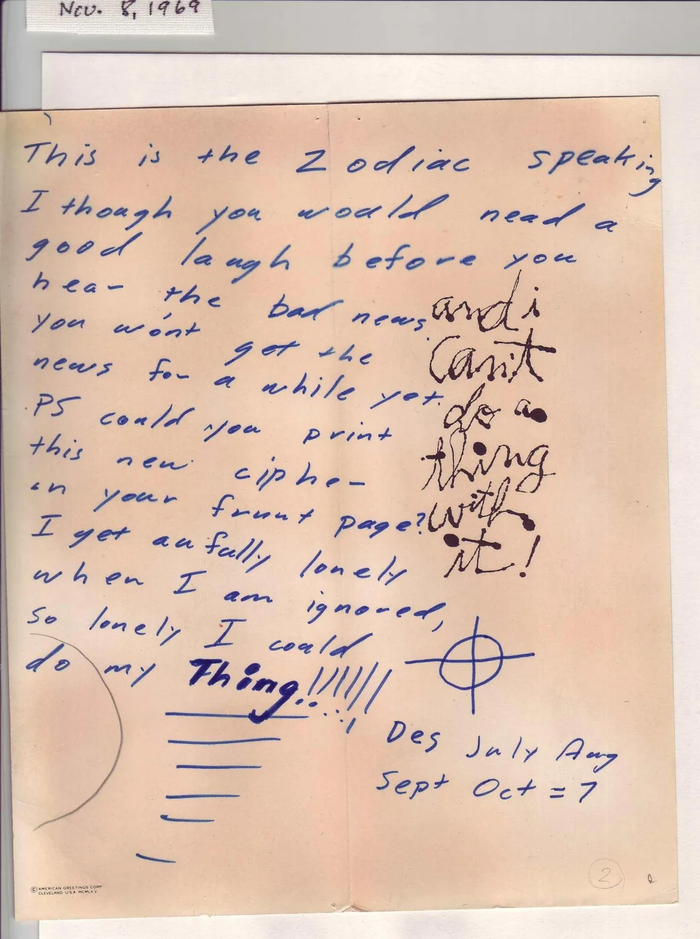 Nov. 8, 1969
This is the Zodiac speaking
I though you would nead a
good laugh before you
hear the bad news
you won't get the
news for a while yet.
PS could you print
this new cipher
in your frunt page?
I get aufully lonely
when I am ignored,
so lonely I could
do my Thing!!!!!!
and i
can't
do a
thing
with
it!
Des July Aug
Sept Oct = 7
© AMERICAN GREETINGS CORP
CLEVELAND, U.S.A. MCMLXV
2